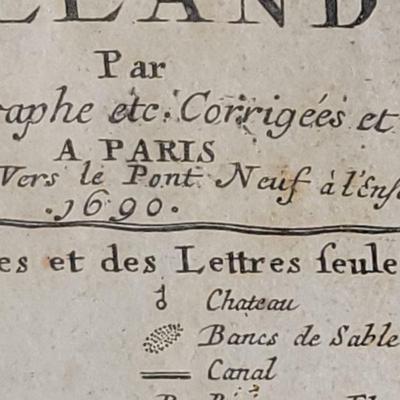 LLAND
Par
raphe etc. Corrigées et
A PARIS
Vers le Pont Neuf à l'Ens
.1690.
es et des Lettres ſeule
Chateau
Bancs de Sable
Canal